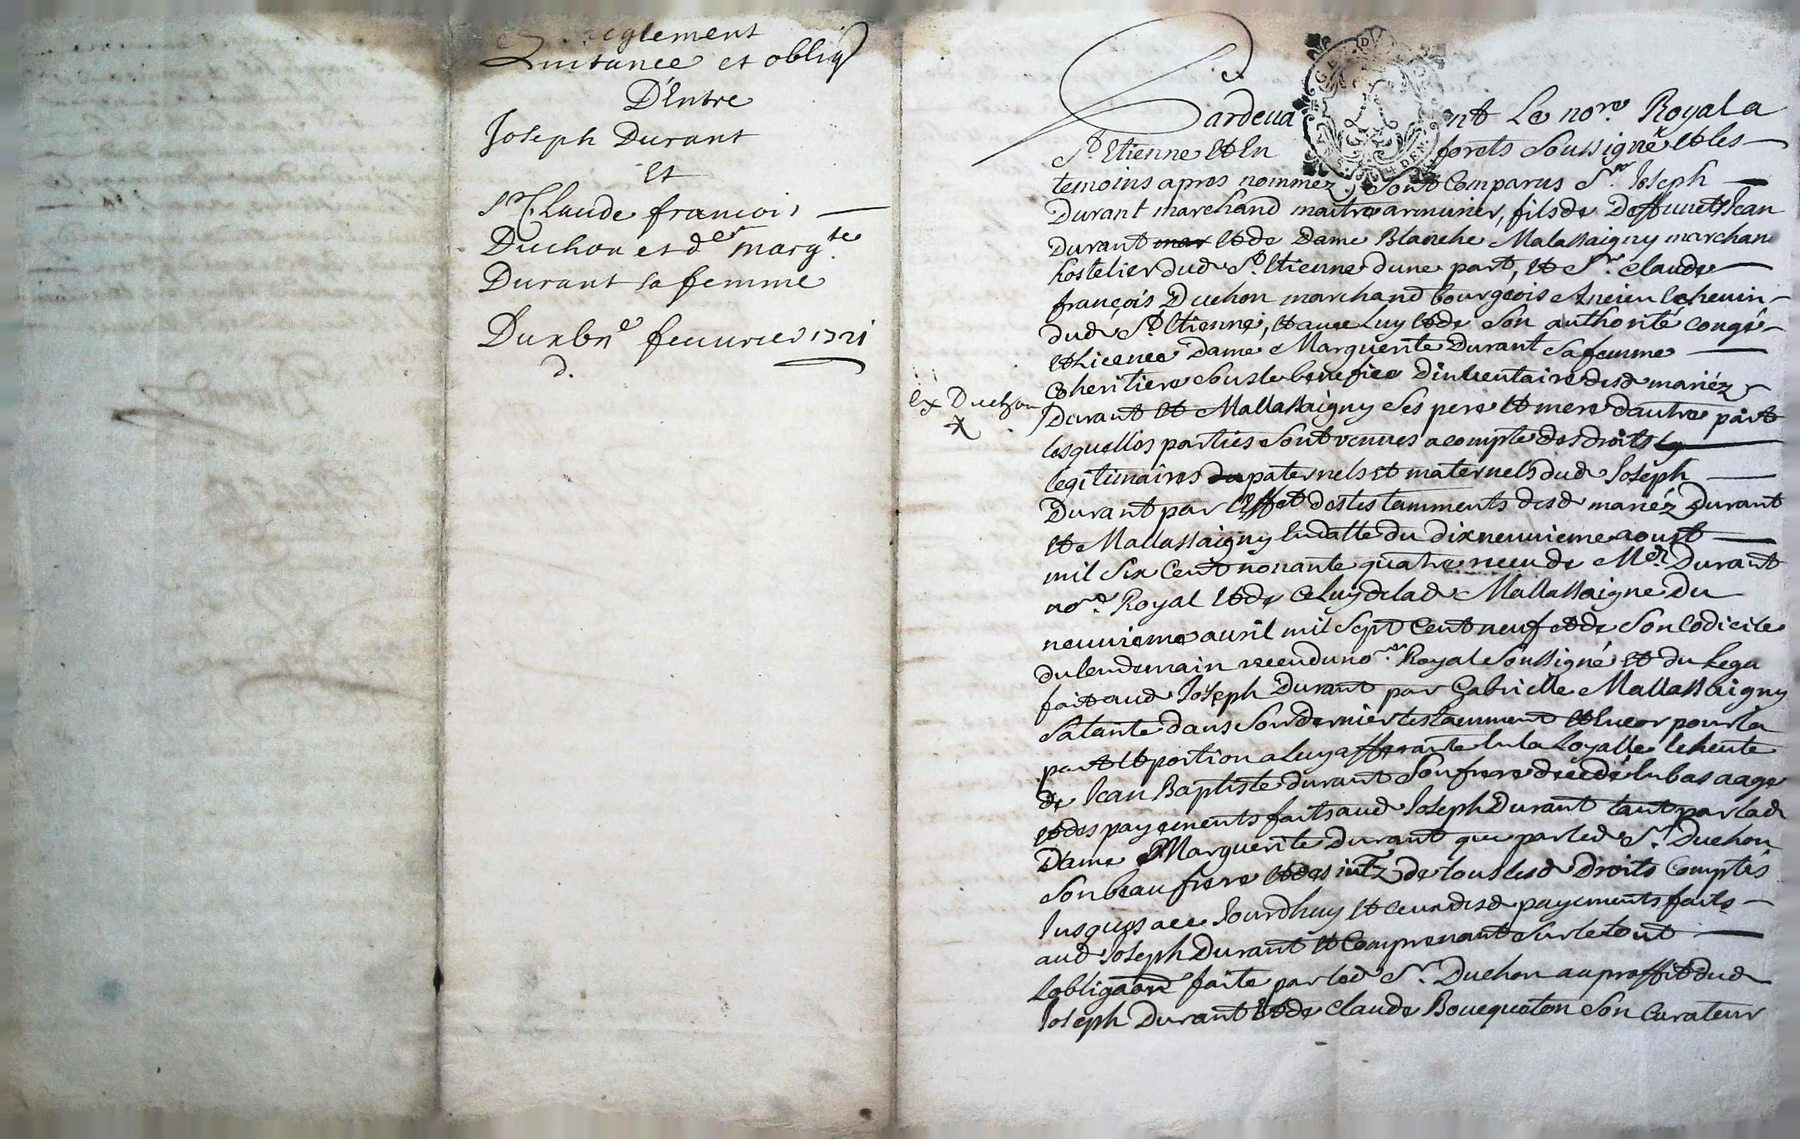 reglement
Quittance et oblig
D'Entre
Joseph Durant
Et
Sr. Claude francois
Duchon et de marg.te
Durant sa femme
Du feuvrier 1721
d.
Pardeuant Le no.re Royal a
St Etienne Et En forets Soussigné Et les
temoins apres nommez, Sont Comparus Sr. Joseph
Durant marchand maitre armurier, fils de Deffunct Jean
Durant mar Et de Dame Blanche Mallassaigny marchand
hostelier dud St Etienne dune part, Et Sr. Claude
françois Duchon marchand bourgeois Ancien Echeuin
dud St Etienne, Et auec Luy Et de Son authorité congé
Et Licence Dame Marguerite Durant Sa femme
Coheritiere Sous le benefice Dinuentaire desd mariéz
Durant Et Mallassaigny Ses pere Et mere dautre part
lesquelles parties Sont venues a compte des droits
legitimaires paternels et maternels dud Joseph
Durant par Leffet des testamments desd mariéz Durant
Et Mallassaigny En datte du dixneuuieme aoust
mil Six Cent nonante quatre receu de Me Durant
no.re Royal Et de Celuy de lad Mallassaigne du
neuuieme auril mil Sept Cent neuf et de Son Codicile
du lendemain receu du no.re Royal Soussigné Et du Lega
fait aud Joseph Durant par Gabrielle Mallassaigny
Sa tante dans Son dernier testamment Et Encor pour la
part Et portion a Luy afferante En la Loyalle Echeute
de Jean Baptiste durant Son frere decedé En bas aage
et des payements faits aud Joseph Durant tant par lad
Dame Marguerite Durant que par led Sr. Duchon
Son beau frere Et des intz de tous lesd Droits Comptés
Jusques a ce Jourdhuy Et Ceux desd payements faits
aud Joseph Durant Et Comprenant Sur le tout
Lobligaon faite par led Sr. Duchon au proffit dud
Joseph Durant Et de Claude Boucqueton Son Curateur
Ex Duchon